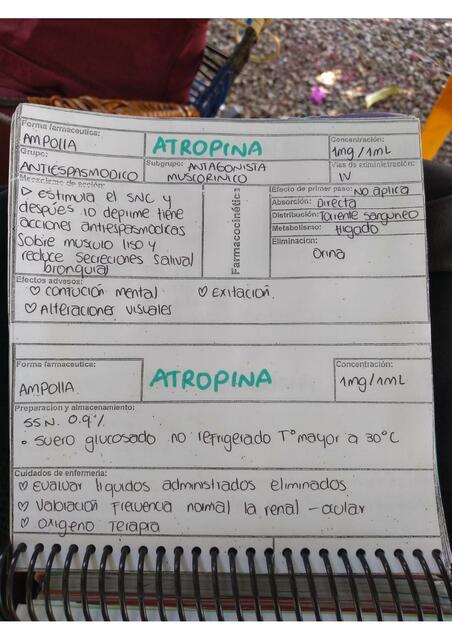 Forma farmaceutica:
AMPOLLA
ATROPINA
Concentración:
1mg/1mL
Grupo:
ANTIESPASMODICO
Subgrupo: ANTAGONISTA
MUSCORINICO
Vías de administración:
IV
Mecanismo de acción:
Estimula el SNC y
después lo deprime tiene
acciones antiespasmodicas
sobre musculo liso y
reduce secreciones salival
bronquial
Farmacocinética
Efecto de primer paso: No aplica
Absorción: Directa
Distribución: Torrente sanguneo
Metabolismo: Higado
Eliminacion:
Orina
Efectos advesos:
♡ confución mental
♡ Exitación.
♡ Alteraciones visuales
Forma farmaceutica:
AMPOLLA
ATROPINA
Concentración:
1mg/1mL
Preparacion y almacenamiento:
SSN. 0.9%
• suero glucosado no refrigerado T° mayor a 30°C
Cuidados de enfermeria:
♡ Evaluar liquidos administrados eliminados.
♡ Valoración Frecuencia normal la renal - ocular
♡ Oxigeno Terapia